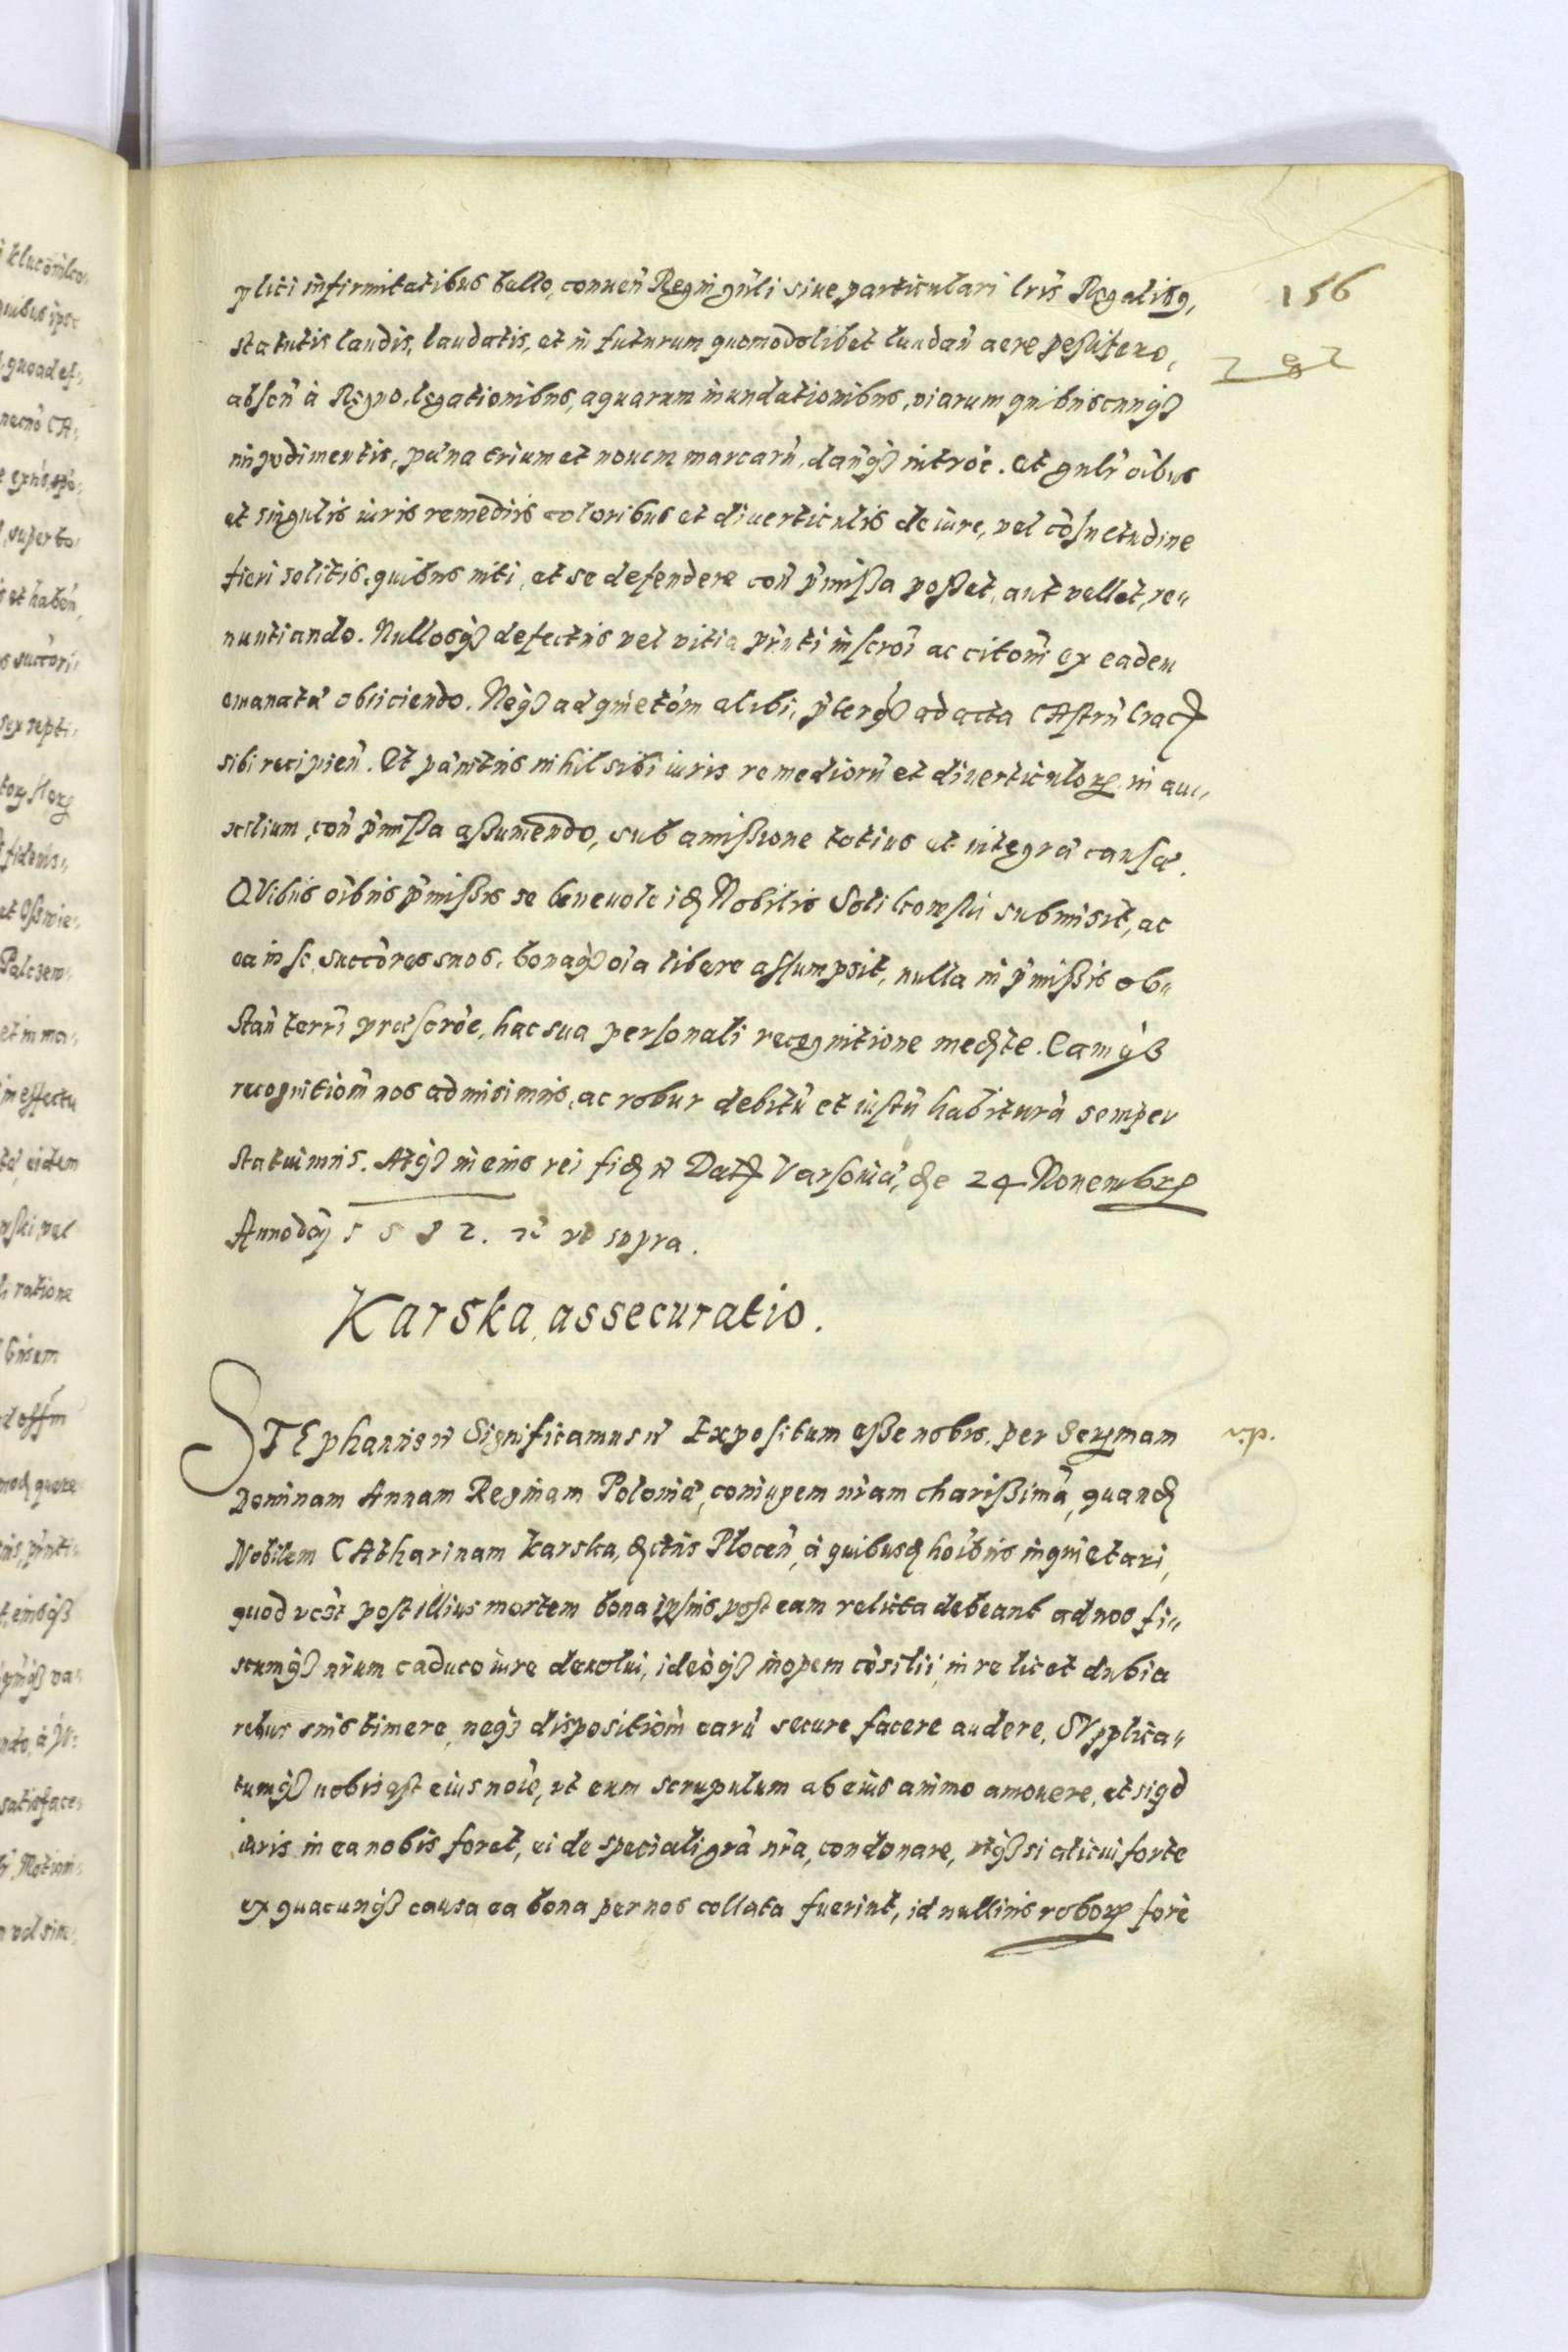 156
plici infirmitatibus bello, conuen̄ Regni gn̄li siue particulari lris Regalibq,
statutis laudis, laudatis, et in futurum quomodolibet laudan̄ aere pestifero,
absen̄ à Regno, legationibus, aquarum inundationibus, viarum quibuscunq3
impedimentis, pæna trium et nouem marcarū, dan̄q3 introē. Et gnlr oībus
et singulis iuris remediis coloribus et diuerticulis de iure, vel cōsuetudine
fieri solitis, quibus niti, et se defendere con̄ p̄missa posset, aut vellet, re„
nuntiando. Nullosq3 defectus vel vitia p̄nti inscrōi ac citoni ex eadem
emanatæ obiiciendo. Neq3 ad quietōm alibi, p̄terq3 ad acta CAstrn̄ Crac
sibi recipien̄. Et pænitus nihil sibi iuris remediorū et diuerticulorꝝ in au„
xilium con̄ p̄missa assumendo, sub amissione totius et integræ causæ.
QVibus oībus p̄missis se beneuole id Nobilis Solikowski submisit, ac
ea in se, succōres suos, bonaq3 oīa libere assumpsit, nulla in p̄missis ob„
stan̄ terrī præscrōe, hac sua personali recognitione medte. Eamq3
recognitiōm nos admisimus, ac robur debitū et iustū habiturā semper
statuimus. Atq3 in eius rei fid n̄ Dat Varsouiæ, de 24 Nouembrꝫ
Anno dn̄i 1 5 8 2. rn̄ vt supra.
Karska assecuratio.
v.p.
STEphanus n̄ Significamus n̄ Expositum esse nobis, per Serꝫmam
Dominam Annam Reginam Poloniæ, coniugem nr̄am charissimā, quand
Nobilem CAtharinam Karska, dctus Plocen̄, à quibusd hoībus inquietari,
quod post illius mortem bona ipsius post eam relicta debeant ad nos fi„
scumq3 nr̄um caduco iure deuolui, ideòq3 inopem cōsilii, in re licet dubia
rebus suis timere, neq3 dispositiōm earū secure facere audere, SVpplica„
tumq3 nobis est eius noīe, vt eum scrupulum ab eius animo amouere, et si qd
iuris in ea nobis foret, ei de speciali grā nr̄a, condonare, vtq3 si alicui forte
ex quacunq3 causa ea bona per nos collata fuerint, id nullius roborꝫ forè